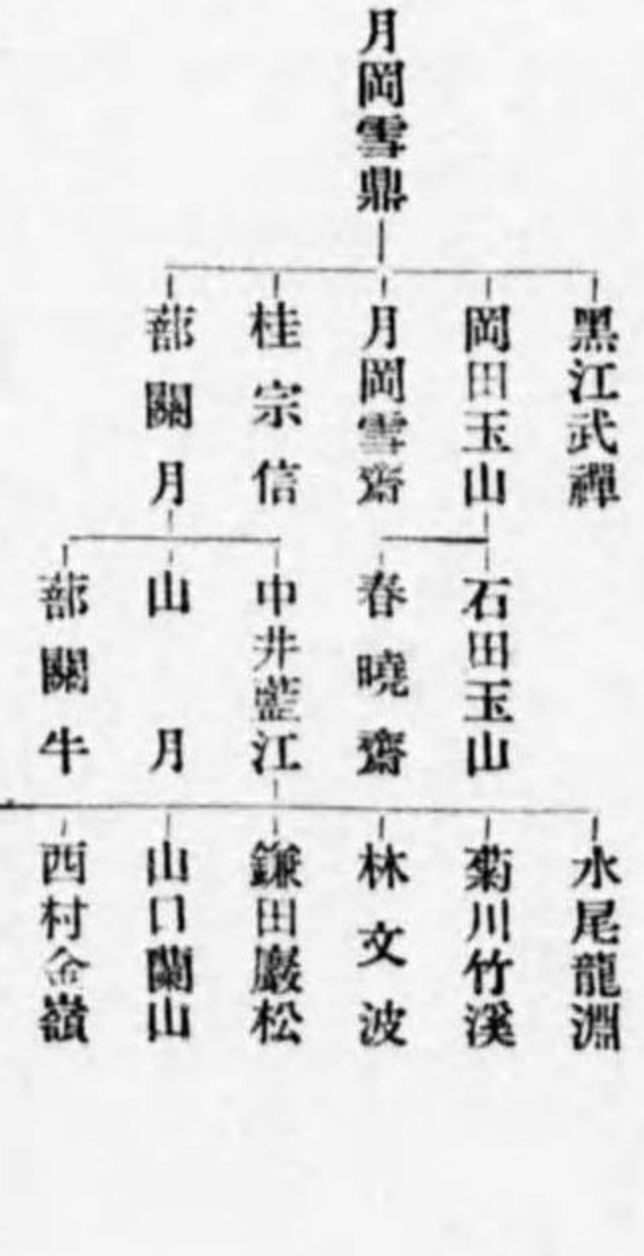 月岡雪鼎
黑江武禪
岡田玉山
月岡雪齋
桂宗信
蔀關月
石田玉山
春曉齋
中井藍江
山月
蔀關牛
水尾龍淵
菊川竹溪
林文波
鎌田巖松
山口蘭山
西村金嶺